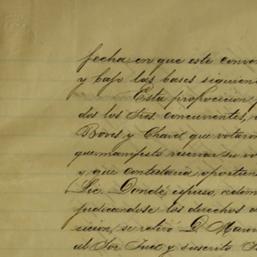 fecha en que este conve
y bajo las bases siguien
Esta proposicion f
dos los Sres. concurrentes,
Boves y Chavez que votaron
que manifestó reservar su vo
y que contestaria oportun
Lic. Dondé, espuso,
judicandose los derechos
sicion, se retiró D. Maria
el Sor Juez y suscrito